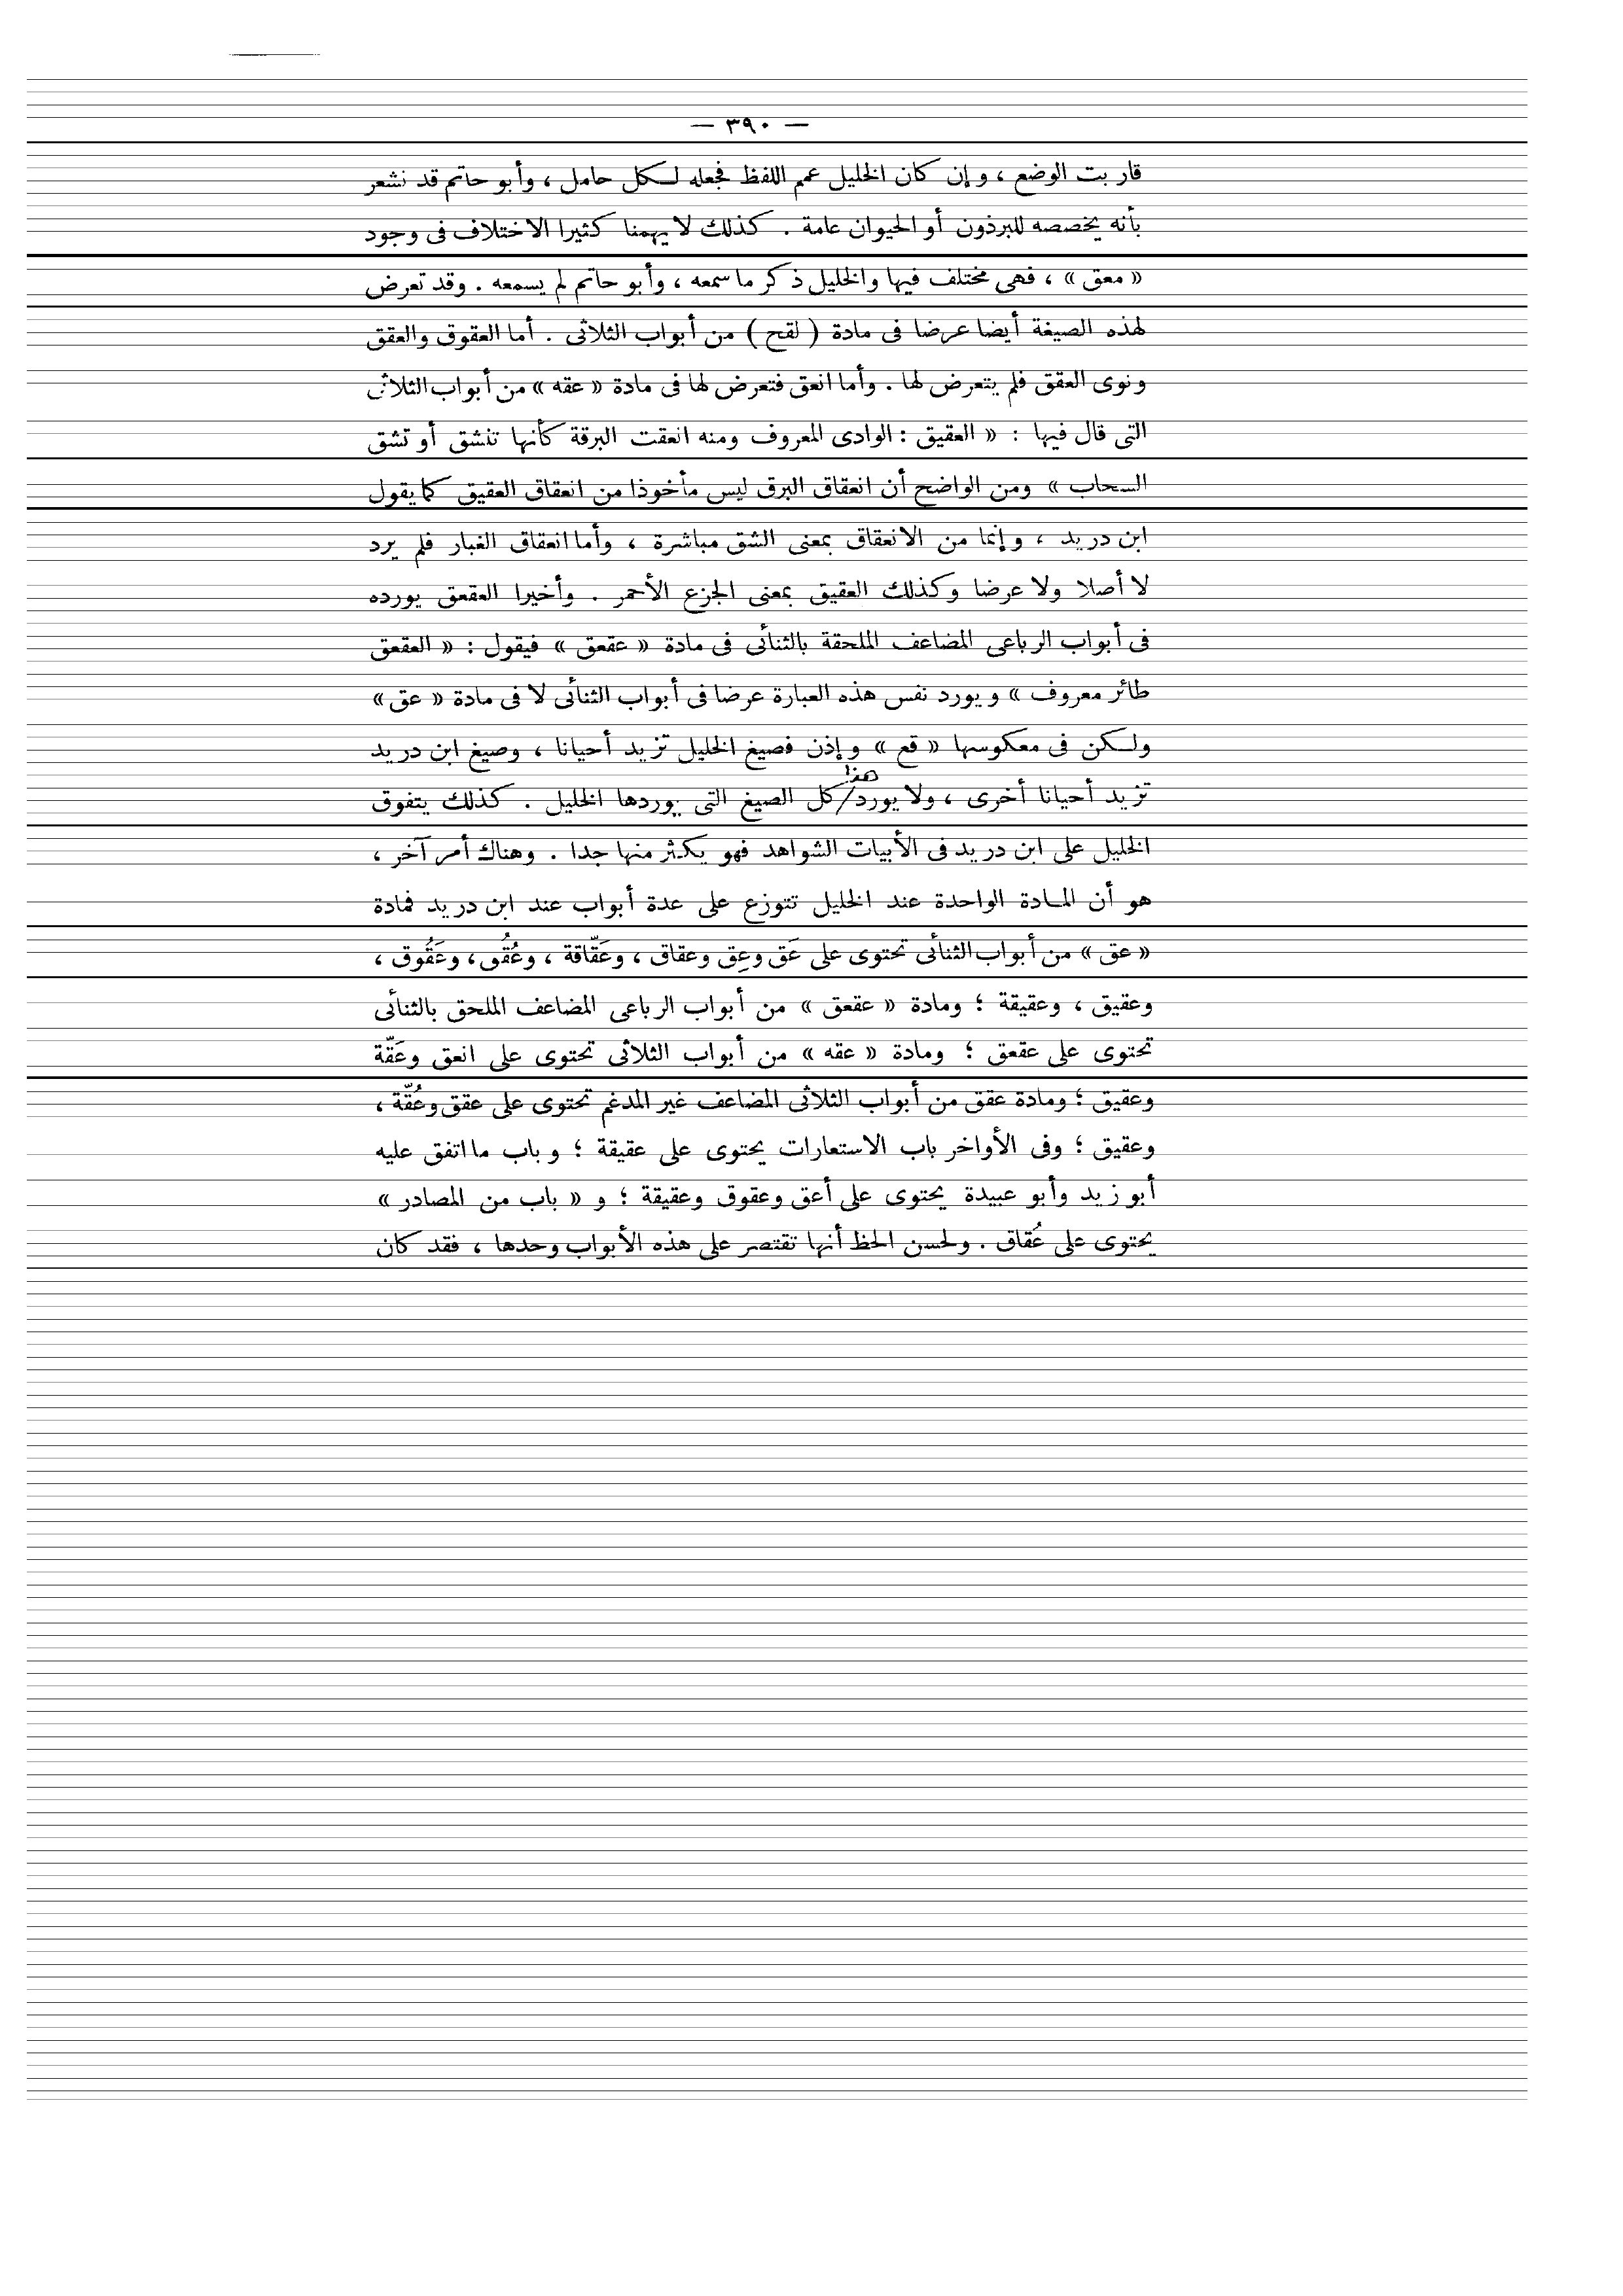 — ٣٩٠ —
قاربت الوضع ، وإن كان الخليل عمم اللفظ فجعله لكل حامل ، وأبو حاتم قد نشعر
بأنه يخصصه للبرذون أو الحيوان عامة . كذلك لا يهمنا كثيرا الاختلاف فى وجود
« معق » ، فهى مختلف فيها والخليل ذكر ما سمعه ، وأبو حاتم لم يسمعه . وقد تعرض
لهذه الصيغة أيضا عرضا فى مادة ( لقح ) من أبواب الثلاثى . أما العقوق والعقق
ونوى العقق فلم يتعرض لها . وأما انعق فتعرض لها فى مادة « عقه » من أبواب الثلاثى
التى قال فيها : « العقيق : الوادى المعروف ومنه انعقت البرقة كأنها تنشق أو تشق
السحاب » ومن الواضح أن انعقاق البرق ليس مأخوذا من انعقاق العقيق كما يقول
ابن دريد ، وإنما من الانعقاق بمعنى الشق مباشرة ، وأما انعقاق الغبار فلم يرد
لا أصلا ولا عرضا وكذلك العقيق بمعنى الجزع الأحمر . وأخيرا العقعق يورده
فى أبواب الرباعى المضاعف الملحقة بالثنائى فى مادة « عقعق » فيقول : « العقعق
طائر معروف » ويورد نفس هذه العبارة عرضا فى أبواب الثنائى لا فى مادة « عق »
ولكن فى معكوسها « قع » وإذن فصيغ الخليل تزيد أحيانا ، وصيغ ابن دريد
تزيد أحيانا أخرى ، ولا يورد/ هذا كل الصيغ التى يوردها الخليل . كذلك يتفوق
الخليل على ابن دريد فى الأبيات الشواهد فهو يكثر منها جدا . وهناك أمر آخر ،
هو أن المادة الواحدة عند الخليل تتوزع على عدة أبواب عند ابن دريد فمادة
« عق » من أبواب الثنائى تحتوى على عَق وعِق وعقاق ، وعَقّاقة ، وعُقُق ، وعَقُوق ،
وعقيق ، وعقيقة ؛ ومادة « عقعق » من أبواب الرباعى المضاعف الملحق بالثنائى
تحتوى على عقعق ؛ ومادة « عقه » من أبواب الثلاثى تحتوى على انعق وعَقّة
وعقيق ؛ ومادة عقق من أبواب الثلاثى المضاعف غير المدغم تحتوى على عقق وعُقّة ،
وعقيق ؛ وفى الأواخر باب الاستعارات يحتوى على عقيقة ؛ وباب ما اتفق عليه
أبو زيد وأبو عبيدة يحتوى على أعق وعقوق وعقيقة ؛ و « باب من المصادر »
يحتوى على عُقاق . ولحسن الحظ أنها تقتصر على هذه الأبواب وحدها ، فقد كان